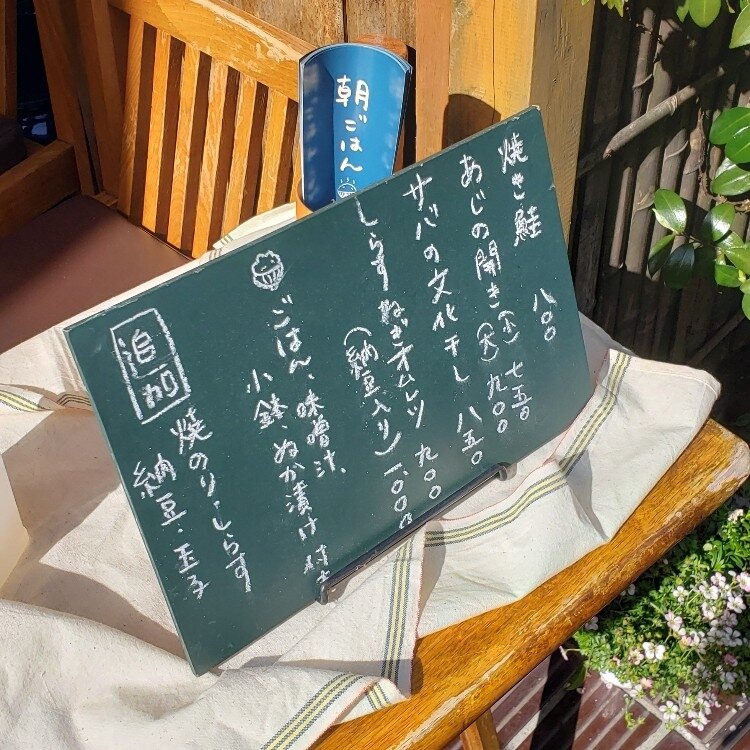 朝ごはん
焼き鮭 八〇〇
あじの開き (小) 七五〇
(大) 九〇〇
サバの文化干し 八五〇
しらすねぎオムレツ 九〇〇
(納豆入り) 一〇〇〇
ごはん、味噌汁、
小鉢、ぬか漬け 付
追加
焼のり・しらす
納豆・玉子